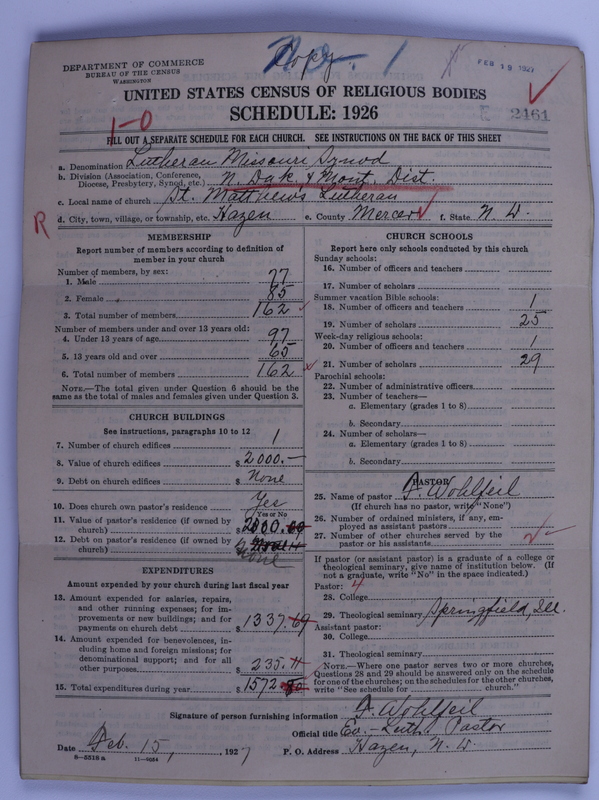 Copy
No. 1
DEPARTMENT OF COMMERCE
BUREAU OF THE CENSUS
WASHINGTON
FEB 19 1927
UNITED STATES CENSUS OF RELIGIOUS BODIES
SCHEDULE: 1926
2461
1-0
FILL OUT A SEPARATE SCHEDULE FOR EACH CHURCH. SEE INSTRUCTIONS ON THE BACK OF THIS SHEET
a. Denomination Lutheran Missouri Synod
b. Division (Association, Conference, Diocese, Presbytery, Synod, etc.) N. Dak. & Mont. Dist.
c. Local name of church St. Matthew's Lutheran
d. City, town, village, or township, etc. Hazen e. County Mercer f. State N. D.
R
MEMBERSHIP
Report number of members according to definition of
member in your church
Number of members, by sex:
1. Male 77
2. Female 85
3. Total number of members 162
Number of members under and over 13 years old:
4. Under 13 years of age 97
5. 13 years old and over 65
6. Total number of members 162
NOTE.—The total given under Question 6 should be the
same as the total of males and females given under Question 3.
CHURCH BUILDINGS
See instructions, paragraphs 10 to 12
7. Number of church edifices 1
8. Value of church edifices $2000.—
9. Debt on church edifices $ None
10. Does church own pastor's residence? Yes
Yes or No
11. Value of pastor's residence (if owned by
church) $2000.00
12. Debt on pastor's residence (if owned by
church) $
None
EXPENDITURES
Amount expended by your church during last fiscal year
13. Amount expended for salaries, repairs,
and other running expenses; for im-
provements or new buildings; and for
payments on church debt $1337.69
14. Amount expended for benevolences, in-
cluding home and foreign missions; for
denominational support; and for all
other purposes $235.11
15. Total expenditures during year $1572.80
CHURCH SCHOOLS
Report here only schools conducted by this church
Sunday schools:
16. Number of officers and teachers
17. Number of scholars
Summer vacation Bible schools:
18. Number of officers and teachers 1
19. Number of scholars 25
Week-day religious schools:
20. Number of officers and teachers 1
21. Number of scholars 29
Parochial schools:
22. Number of administrative officers
23. Number of teachers—
a. Elementary (grades 1 to 8)
b. Secondary
24. Number of scholars—
a. Elementary (grades 1 to 8)
b. Secondary
PASTOR
25. Name of pastor F. Wohlfeil
(If church has no pastor, write "None")
26. Number of ordained ministers, if any, em-
ployed as assistant pastors
27. Number of other churches served by the
pastor or his assistants
If pastor (or assistant pastor) is a graduate of a college or
theological seminary, give name of institution below. (If
not a graduate, write "No" in the space indicated.)
Pastor: 4
28. College
29. Theological seminary Springfield, Ill.
Assistant pastor:
30. College
31. Theological seminary
NOTE.—Where one pastor serves two or more churches,
Questions 28 and 29 should be answered only on the schedule
for one of the churches; on the schedules for the other churches,
write "See schedule for church."
Signature of person furnishing information F. Wohlfeil
Official title Ev.-Luth. Pastor
Date Feb. 15, 1927 P. O. Address Hazen, N. D.
8-5318 a 11-9054